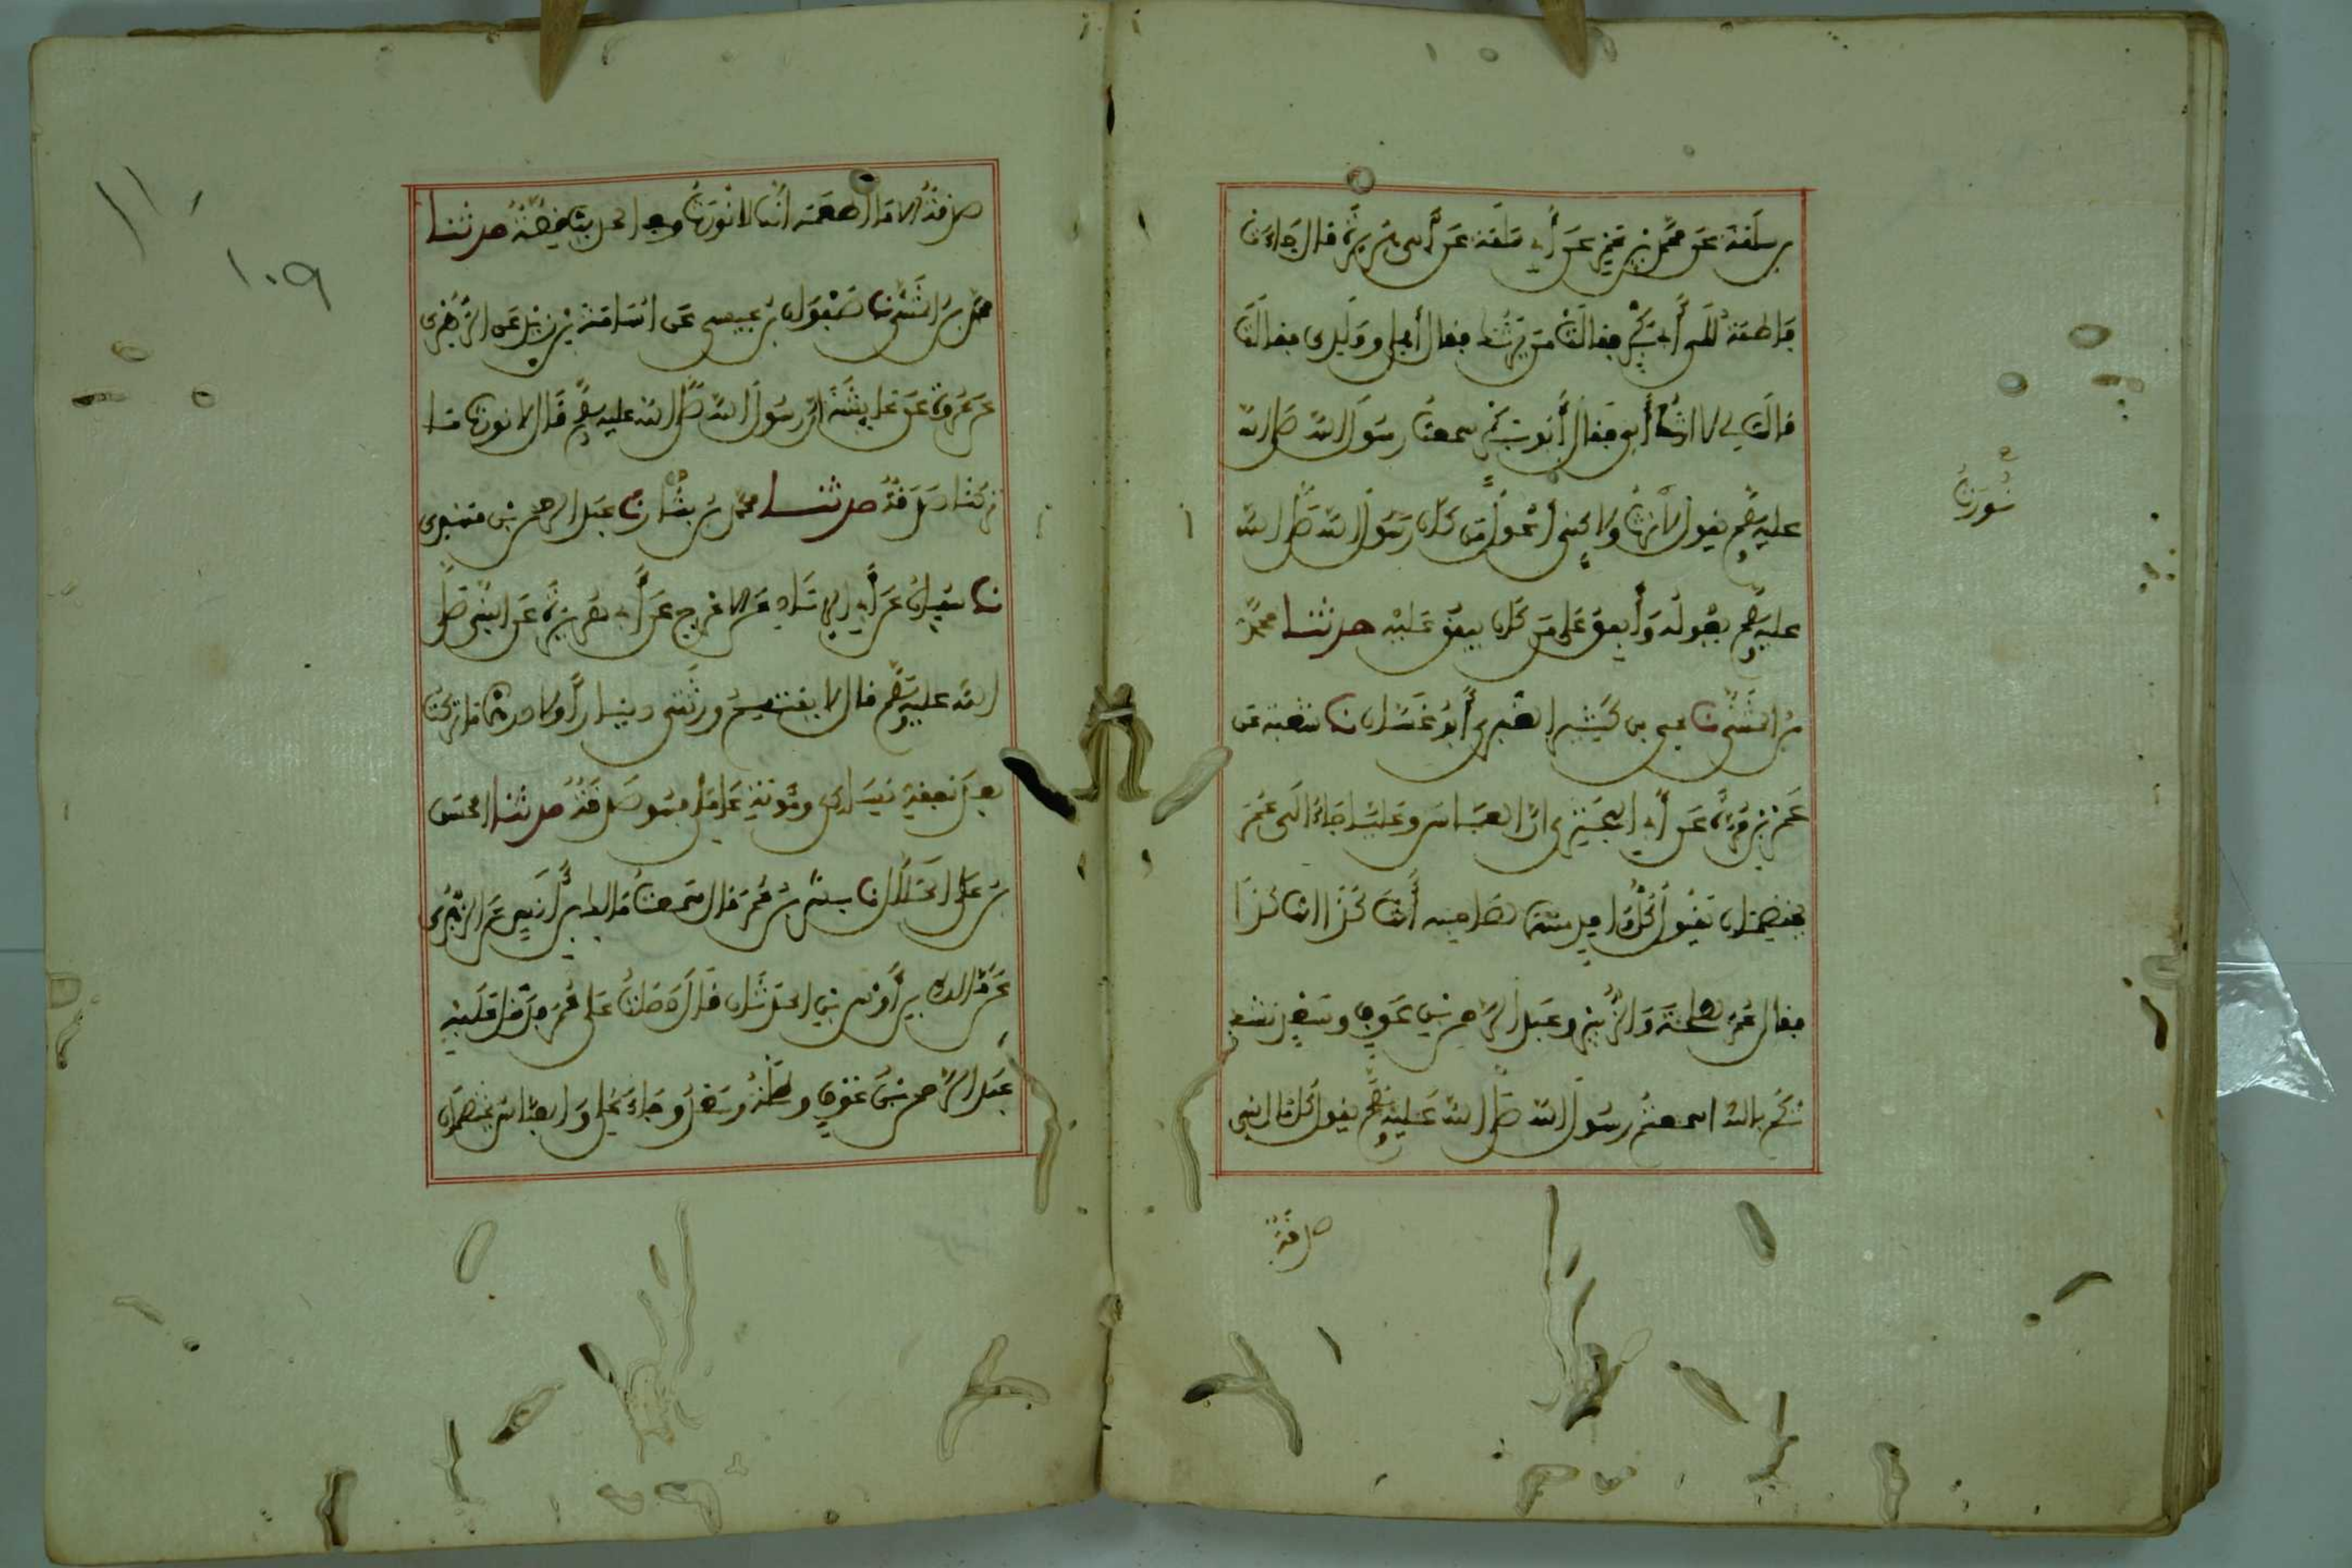 بن سلمة عن محمد بن عمرو عن أبي سلمة عن أبي هريرة قال جاءت
فاطمة إلى أبي بكر فقالت من يرثك فقال أهلي وولدي فقالت
مالي لا أرث أبي فقال أبو بكر سمعت رسول الله صلى الله
عليه وسلم يقول لا نورث ولاكني أعول من كان رسول الله صلى الله
عليه وسلم يعوله وأنفق على من كان ينفق عليه حدثنا محمد
بن المثنى نا يحيى بن كثير العنبري أبو غسان نا شعبة عن
عمرو بن مرة عن أبي البختري ان العباس وعليا جاءا الى عمر
يختصمان يقول كل واحد منهما لصاحبه أنت كذا انت كذا
فقال عمر لطلحة والزبير وعبد الرحمن بن عوف وسعد نشد
تكم بالله اسمعتم رسول الله صلى الله عليه وسلم يقول كل مال نبي
صدقة
نورث
صدقة الا ما اطعمه انا لا نورث وفي الحديث قصة حدثنا
محمد بن المثنى نا صفوان بن عيسى عن اسامة بن زيد عن الزهري
عن عروة عن عايشة ان رسول الله صلى الله عليه وسلم قال لا نورث ما
تركنا صدقة حدثنا محمد بن بشار نا عبد الرحمن بن مهدي
نا سفيان عن أبي الزناد عن الاعرج عن أبي هريرة عن النبي صلى
الله عليه وسلم قال لا يقتسم ورثتي دينارا ولا درهما ما تركت
بعد نفقة نساءي ومئونة عاملي فهو صدقة حدثنا الحسن
بن علي الخلال نا بشر بن عمر قال سمعت مالك بن أنس عن الزهري
عن مالك بن أوس بن الحدثان قال دخلت على عمر فدخل عليه
عبد الرحمن بن عوف وطلحة وسعد وجاء علي والعباس يختصمان
١٠٩